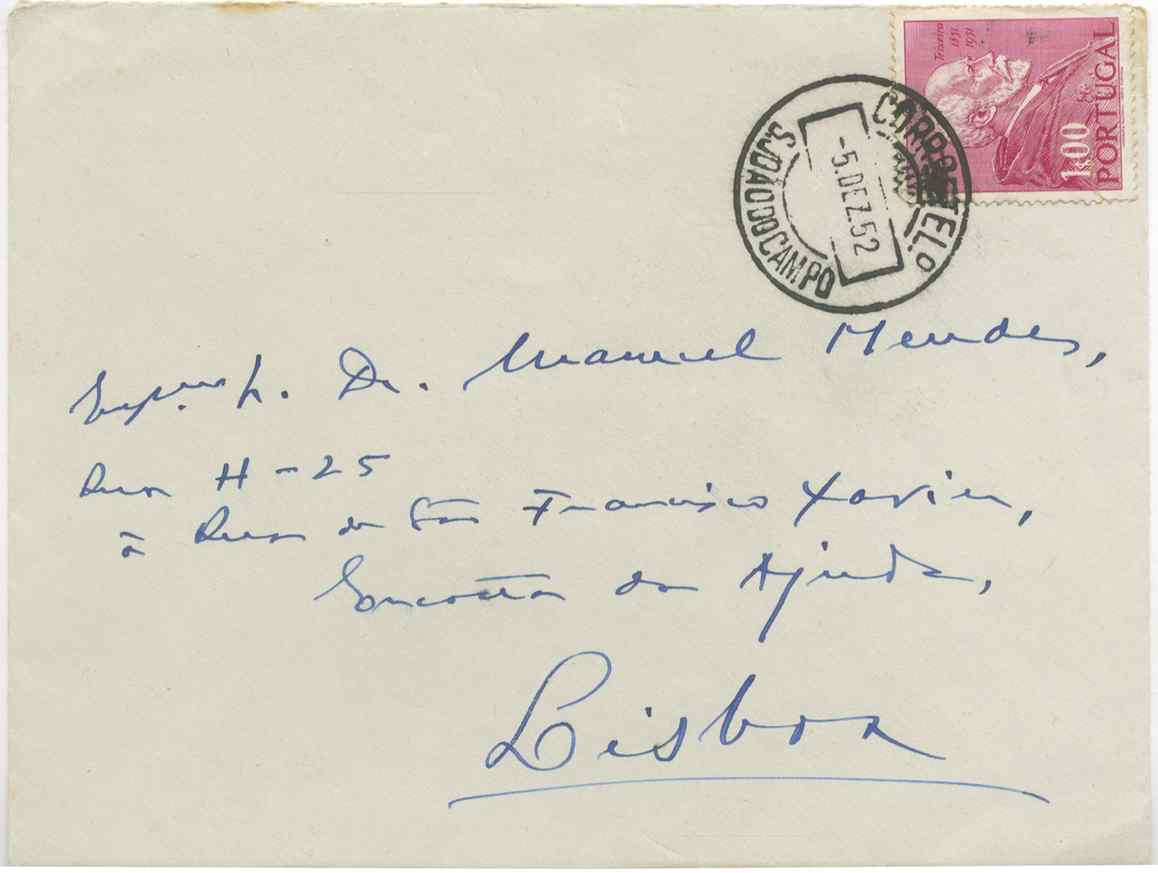 Teixeira
1851
1951
1$00
PORTUGAL
CORRO E TEL.º
-5.DEZ.52
S.JOAO DO CAMPO
Exmo. Sr. Dr. Manuel Mendes,
Rua H - 25
à Rua de São Francisco Xavier,
Encosta da Ajuda,
Lisboa